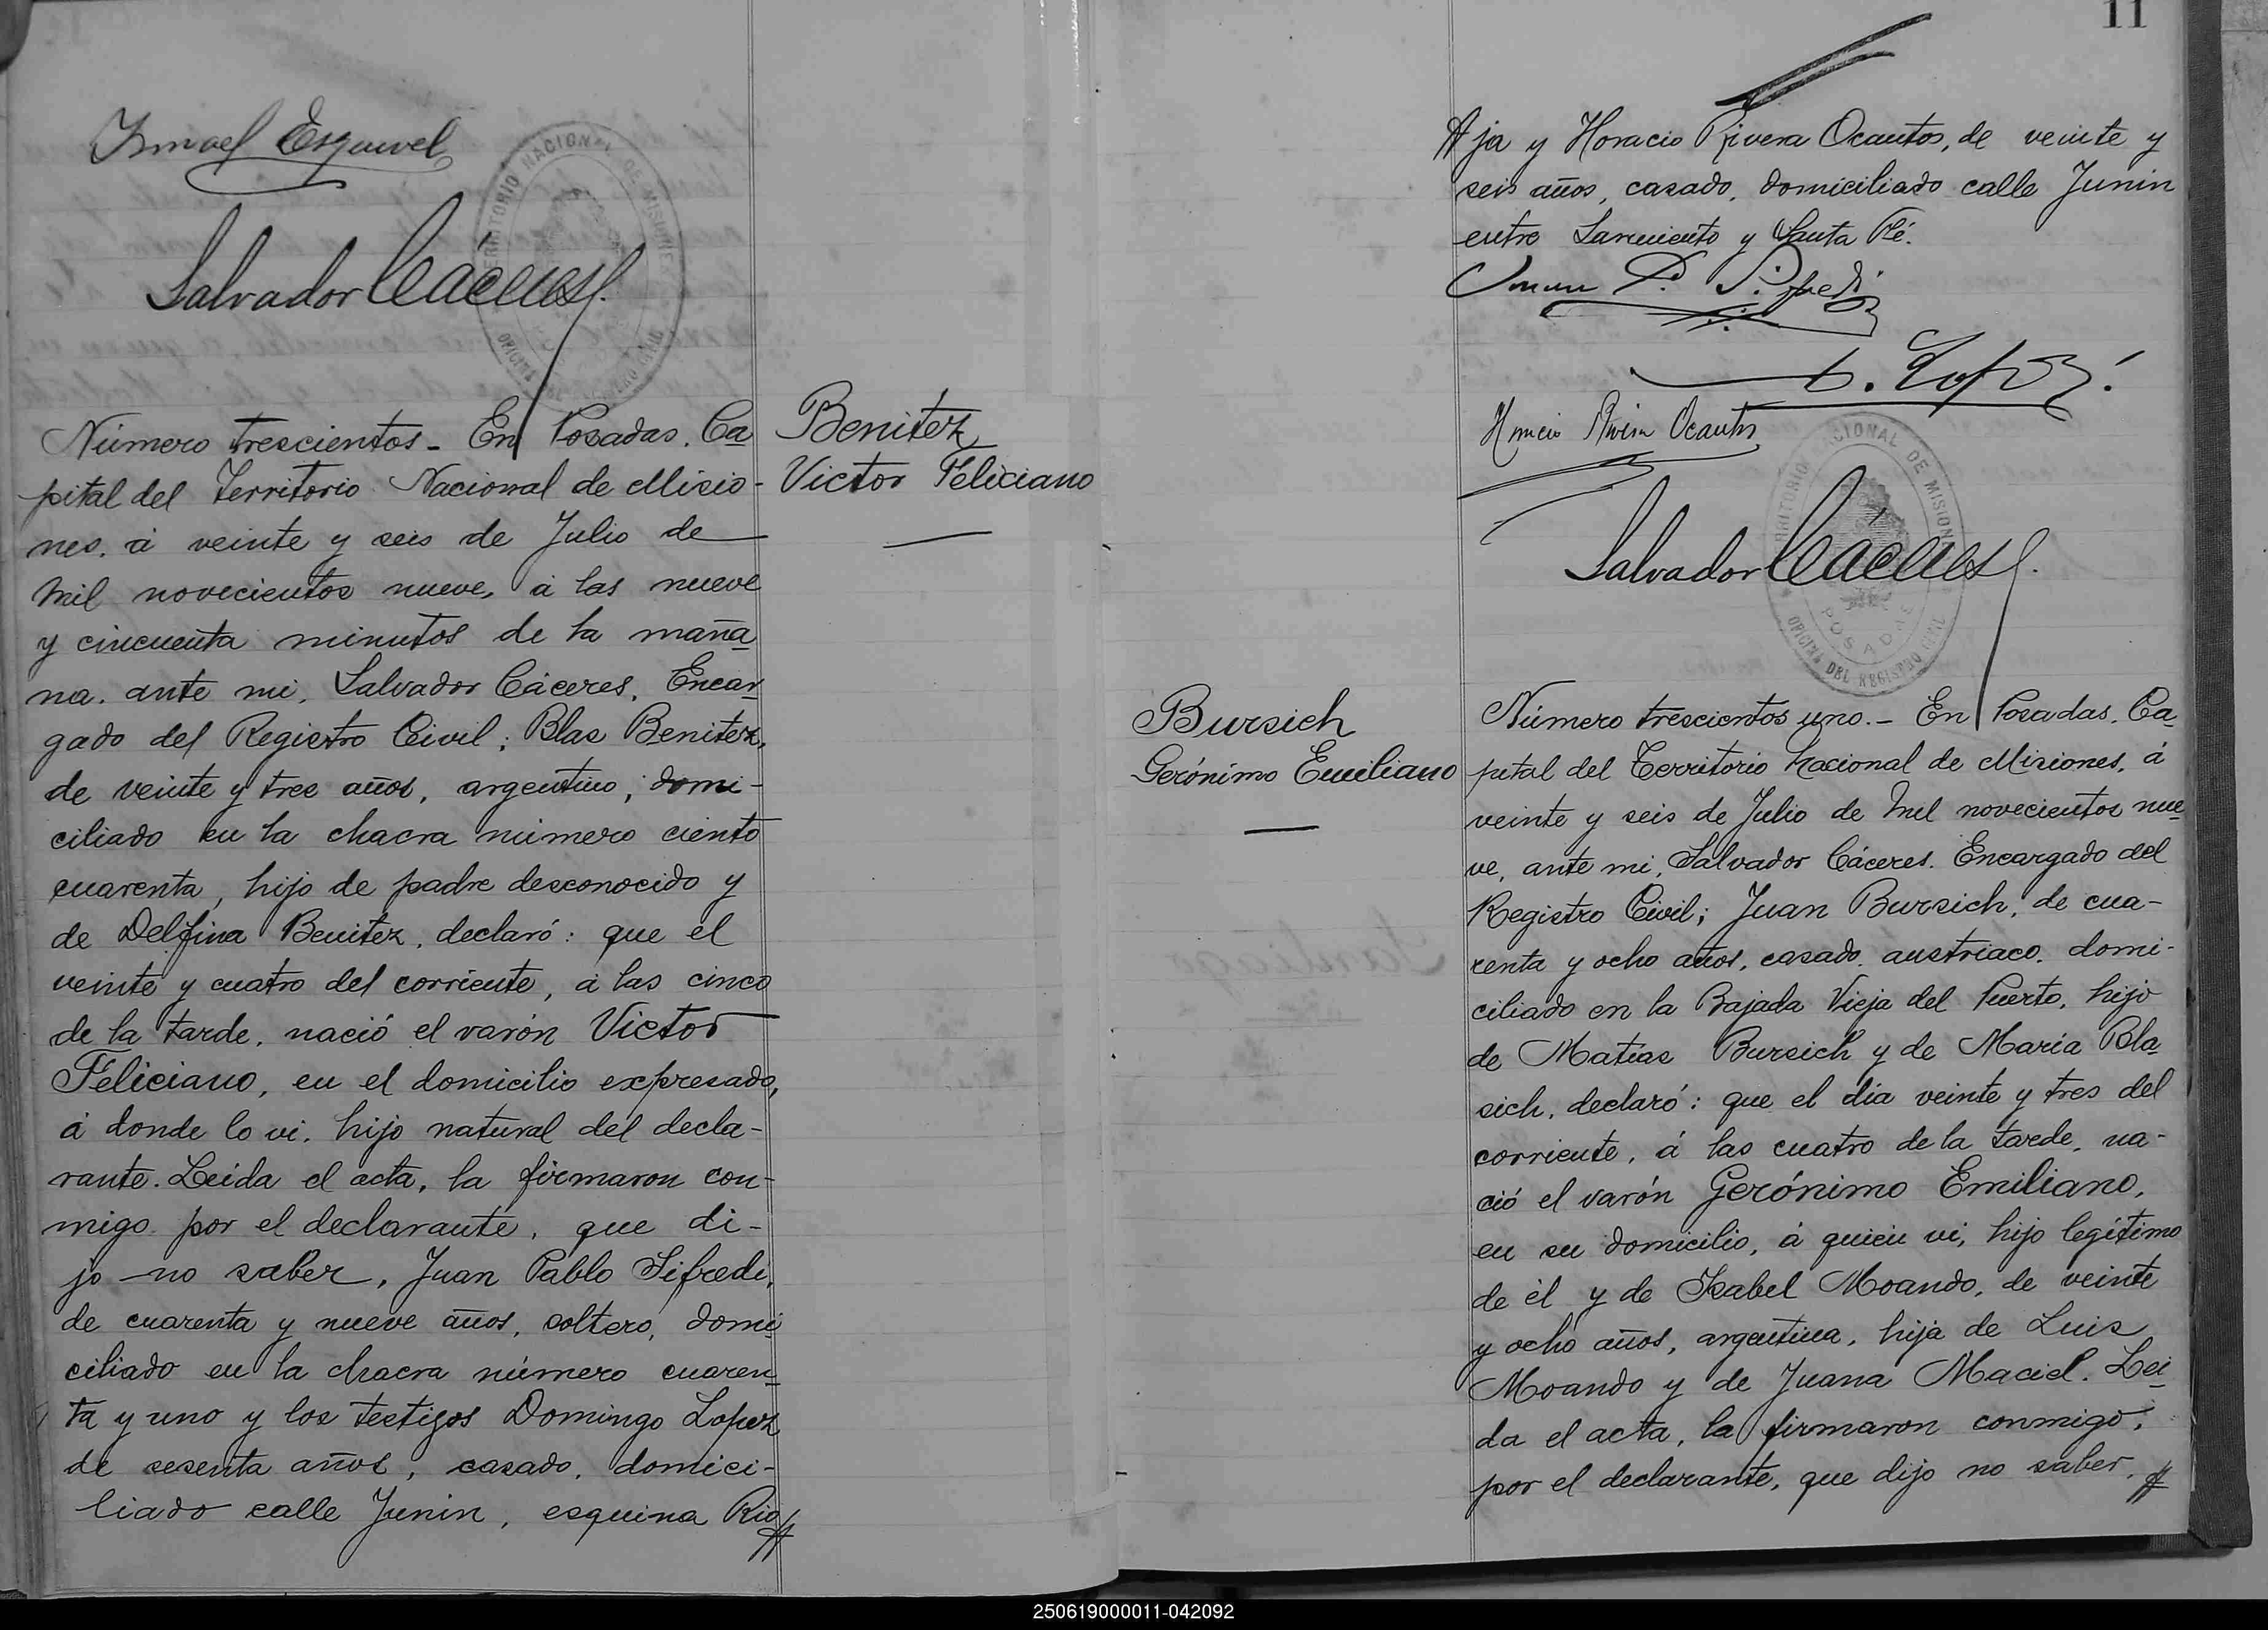 Ismael Esquivel
Salvador Cáceres
TERRITORIO NACIONAL DE MISIONES
OFICINA DEL REGISTRO CIVIL
Benitez
Victor Feliciano
Número trescientos - En Posadas, Ca
pital del Territorio Nacional de Misio-
nes, á veinte y seis de Julio de
mil novecientos nueve, á las nueve
y cincuenta minutos de la maña
na, ante mi, Salvador Cáceres, Encar
gado del Registro Civil; Blas Benitez,
de veinte y tres años, argentino, domi-
ciliado en la chacra número ciento
cuarenta, hijo de padre desconocido y
de Delfina Benitez, declaró: que el
veinte y cuatro del corriente, á las cinco
de la tarde, nació el varón Victor
Feliciano, en el domicilio expresado,
á donde lo vi, hijo natural del decla-
rante. Leida el acta, la firmaron con-
migo por el declarante, que di-
jo no saber, Juan Pablo Sifredi,
de cuarenta y nueve años, soltero, domi
ciliado en la chacra número cuaren
ta y uno y los testigos Domingo Lopez
de sesenta años, casado, domici-
liado calle Junin, esquina Rio
11
ja y Horacio Rivera Ocantos, de veinte y
seis años, casado, domiciliado calle Junin
entre Sarmiento y Santa Fé.
D. Lopez
Horacio Rivera Ocantos
Salvador Cáceres
TERRITORIO NACIONAL DE MISIONES
POSADAS
OFICINA DEL REGISTRO CIVIL
Bursich
Gerónimo Emiliano
Número trescientos uno.- En Posadas, Ca
pital del Territorio Nacional de Misiones, á
veinte y seis de Julio de mil novecientos nue
ve, ante mi, Salvador Cáceres, Encargado del
Registro Civil; Juan Bursich, de cua-
renta y ocho años, casado, austriaco, domi-
ciliado en la Bajada Vieja del Puerto, hijo
de Matias Bursich y de María Bla
sich, declaró: que el día veinte y tres del
corriente, á las cuatro de la tarde, na-
ció el varón Gerónimo Emiliano,
en su domicilio, á quien vi, hijo legítimo
de él y de Isabel Moando, de veinte
y ocho años, argentina, hija de Luis
Moando y de Juana Maciel. Lei
da el acta, la firmaron conmigo,
por el declarante, que dijo no saber,
250619000011-042092